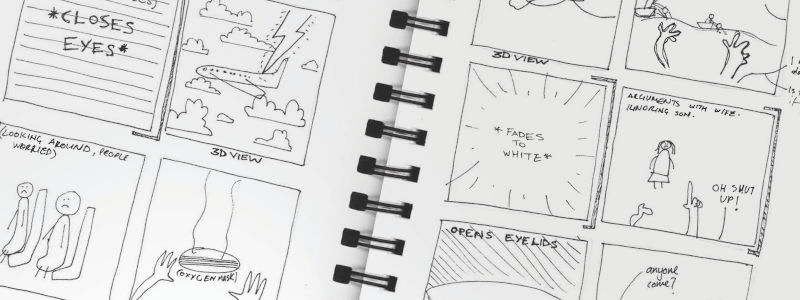 *CLOSES
EYES*
3D VIEW
(LOOKING AROUND, PEOPLE
WORRIED)
(OXYGEN MASK)
3D VIEW
* FADES
TO
WHITE *
ARGUMENTS WITH WIFE.
IGNORING SON.
OH SHUT
UP!
OPENS EYELIDS
anyone
come?